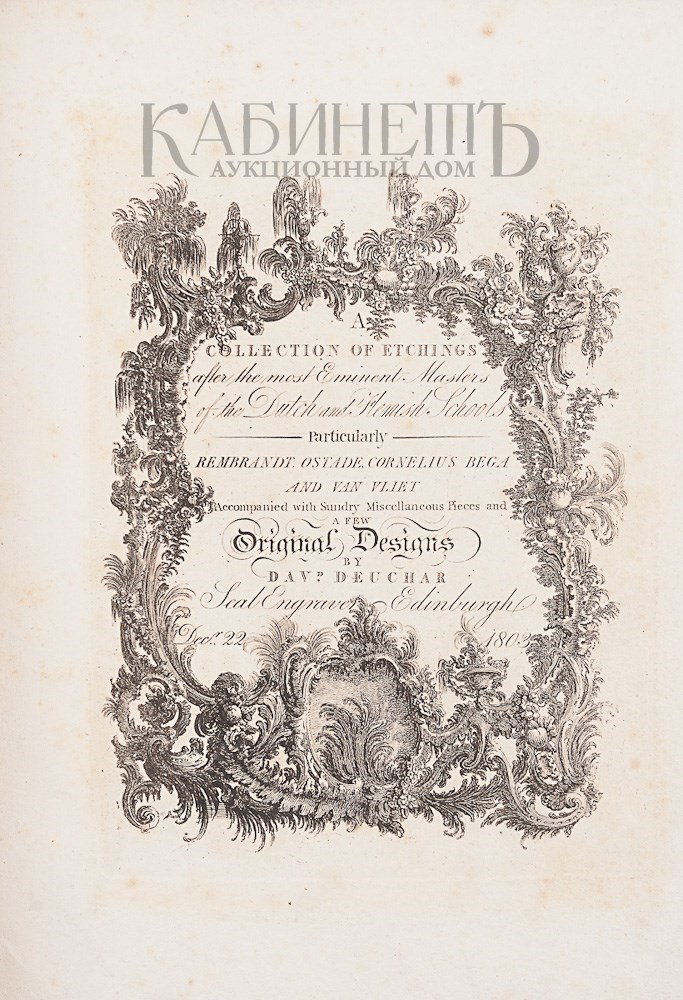 КАБИНЕТЪ
АУКЦИОННЫЙ ДОМ
A
COLLECTION OF ETCHINGS
after the most Eminent Masters
of the Dutch and Flemish Schools
Particularly
REMBRANDT, OSTADE, CORNELIUS BEGA
AND VAN VLIET
Accompanied with Sundry Miscellaneous Pieces and
A FEW
Original Designs
BY
DAVD. DEUCHAR
Seal Engraver Edinburgh
Decr. 22 1803